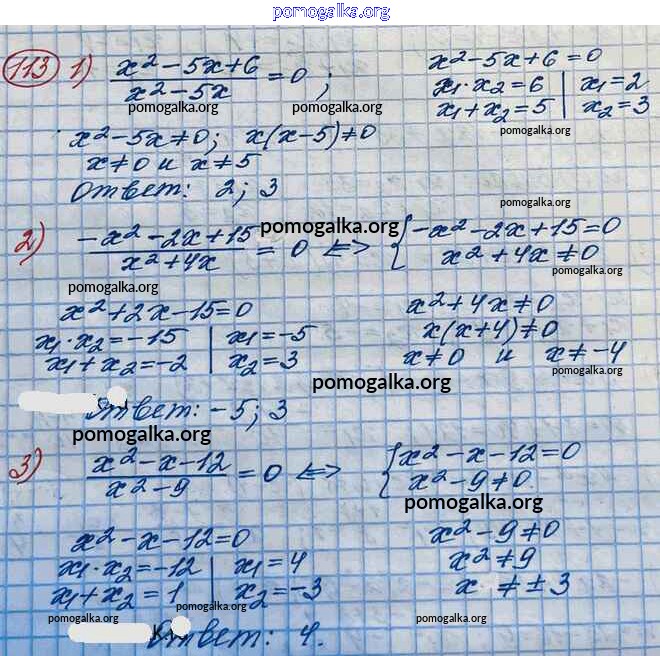 pomogalka.org
113 1) (x² - 5x + 6)/(x² - 5x) = 0 ; x² - 5x + 6 = 0
x₁ · x₂ = 6 | x₁ = 2
x₁ + x₂ = 5 | x₂ = 3
pomogalka.org pomogalka.org
pomogalka.org
x² - 5x ≠ 0; x(x - 5) ≠ 0
x ≠ 0 и x ≠ 5
Ответ: 2; 3
pomogalka.org
pomogalka.org
2) (-x² - 2x + 15)/(x² + 4x) = 0 <=> { -x² - 2x + 15 = 0
x² + 4x ≠ 0
pomogalka.org
pomogalka.org
x² + 2x - 15 = 0 x² + 4x ≠ 0
x₁ · x₂ = -15 | x₁ = -5 x(x + 4) ≠ 0
x₁ + x₂ = -2 | x₂ = 3 x ≠ 0 и x ≠ -4
pomogalka.org
pomogalka.org
Ответ: -5; 3
pomogalka.org
3) (x² - x - 12)/(x² - 9) = 0 <=> { x² - x - 12 = 0
x² - 9 ≠ 0.
pomogalka.org
x² - x - 12 = 0 x² - 9 ≠ 0
x₁ · x₂ = -12 | x₁ = 4 x² ≠ 9
x₁ + x₂ = 1 | x₂ = -3 x ≠ ± 3
pomogalka.org pomogalka.org
Ответ: 4.